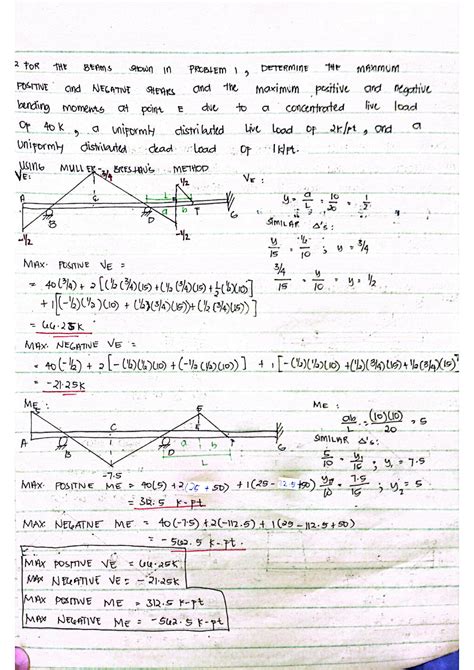 2 FOR THE BEAMS SHOWN IN PROBLEM 1, DETERMINE THE MAXIMUM
POSITIVE and NEGATIVE SHEARS and the maximum positive and negative
bending moments at point E due to a concentrated live load
OF 40 K, a uniformly distributed live load OF 2K/ft, and a
uniformly distributed dead load OF 1K/ft.
USING MULLER-BRESLAU'S METHOD
VE:
3/4
1/2
L
A
C
a
b
F
G
B
D
-1/2
-1/2
VE:
y = a/L = 10/20 = 1/2
SIMILAR Δ's:
y/15 = 1/2/10 ; y = 3/4
3/4/15 = y/10 = y = 1/2
MAX. POSITIVE VE =
= 40(3/4) + 2[(1/2)(3/4)(15)+(1/2)(3/4)(15)+1/2(1/2)(10)]
+ 1[(-1/2)(1/2)(10) + (1/2)(3/4)(15)+(1/2)(3/4)(15)]
= 66.25K
MAX. NEGATIVE VE =
= 40(-1/2) + 2[-(1/2)(1/2)(10)+(-1/2)(1/2)(10)] + 1[-(1/2)(1/2)(10)+(1/2)(3/4)(15)+1/2(3/4)(15)
= -21.25K
ME:
5
5
A
C
a
b
B
D
G
L
-7.5
ME:
ab/L = (10)(10)/20 = 5
SIMILAR Δ's:
5/10 = y1/15 ; y1 = 7.5
y2/10 = 7.5/15 ; y2 = 5
MAX. POSITIVE ME = 40(5)+2(25+50) + 1(25-112.5+50)
= 312.5 K-ft.
MAX. NEGATIVE ME = 40(-7.5)+2(-112.5)+1(25-112.5+50)
= -562.5 K-ft.
MAX POSITIVE VE = 66.25K
MAX NEGATIVE VE = -21.25K
MAX POSITIVE ME = 312.5 K-ft
MAX NEGATIVE ME = -562.5 K-ft